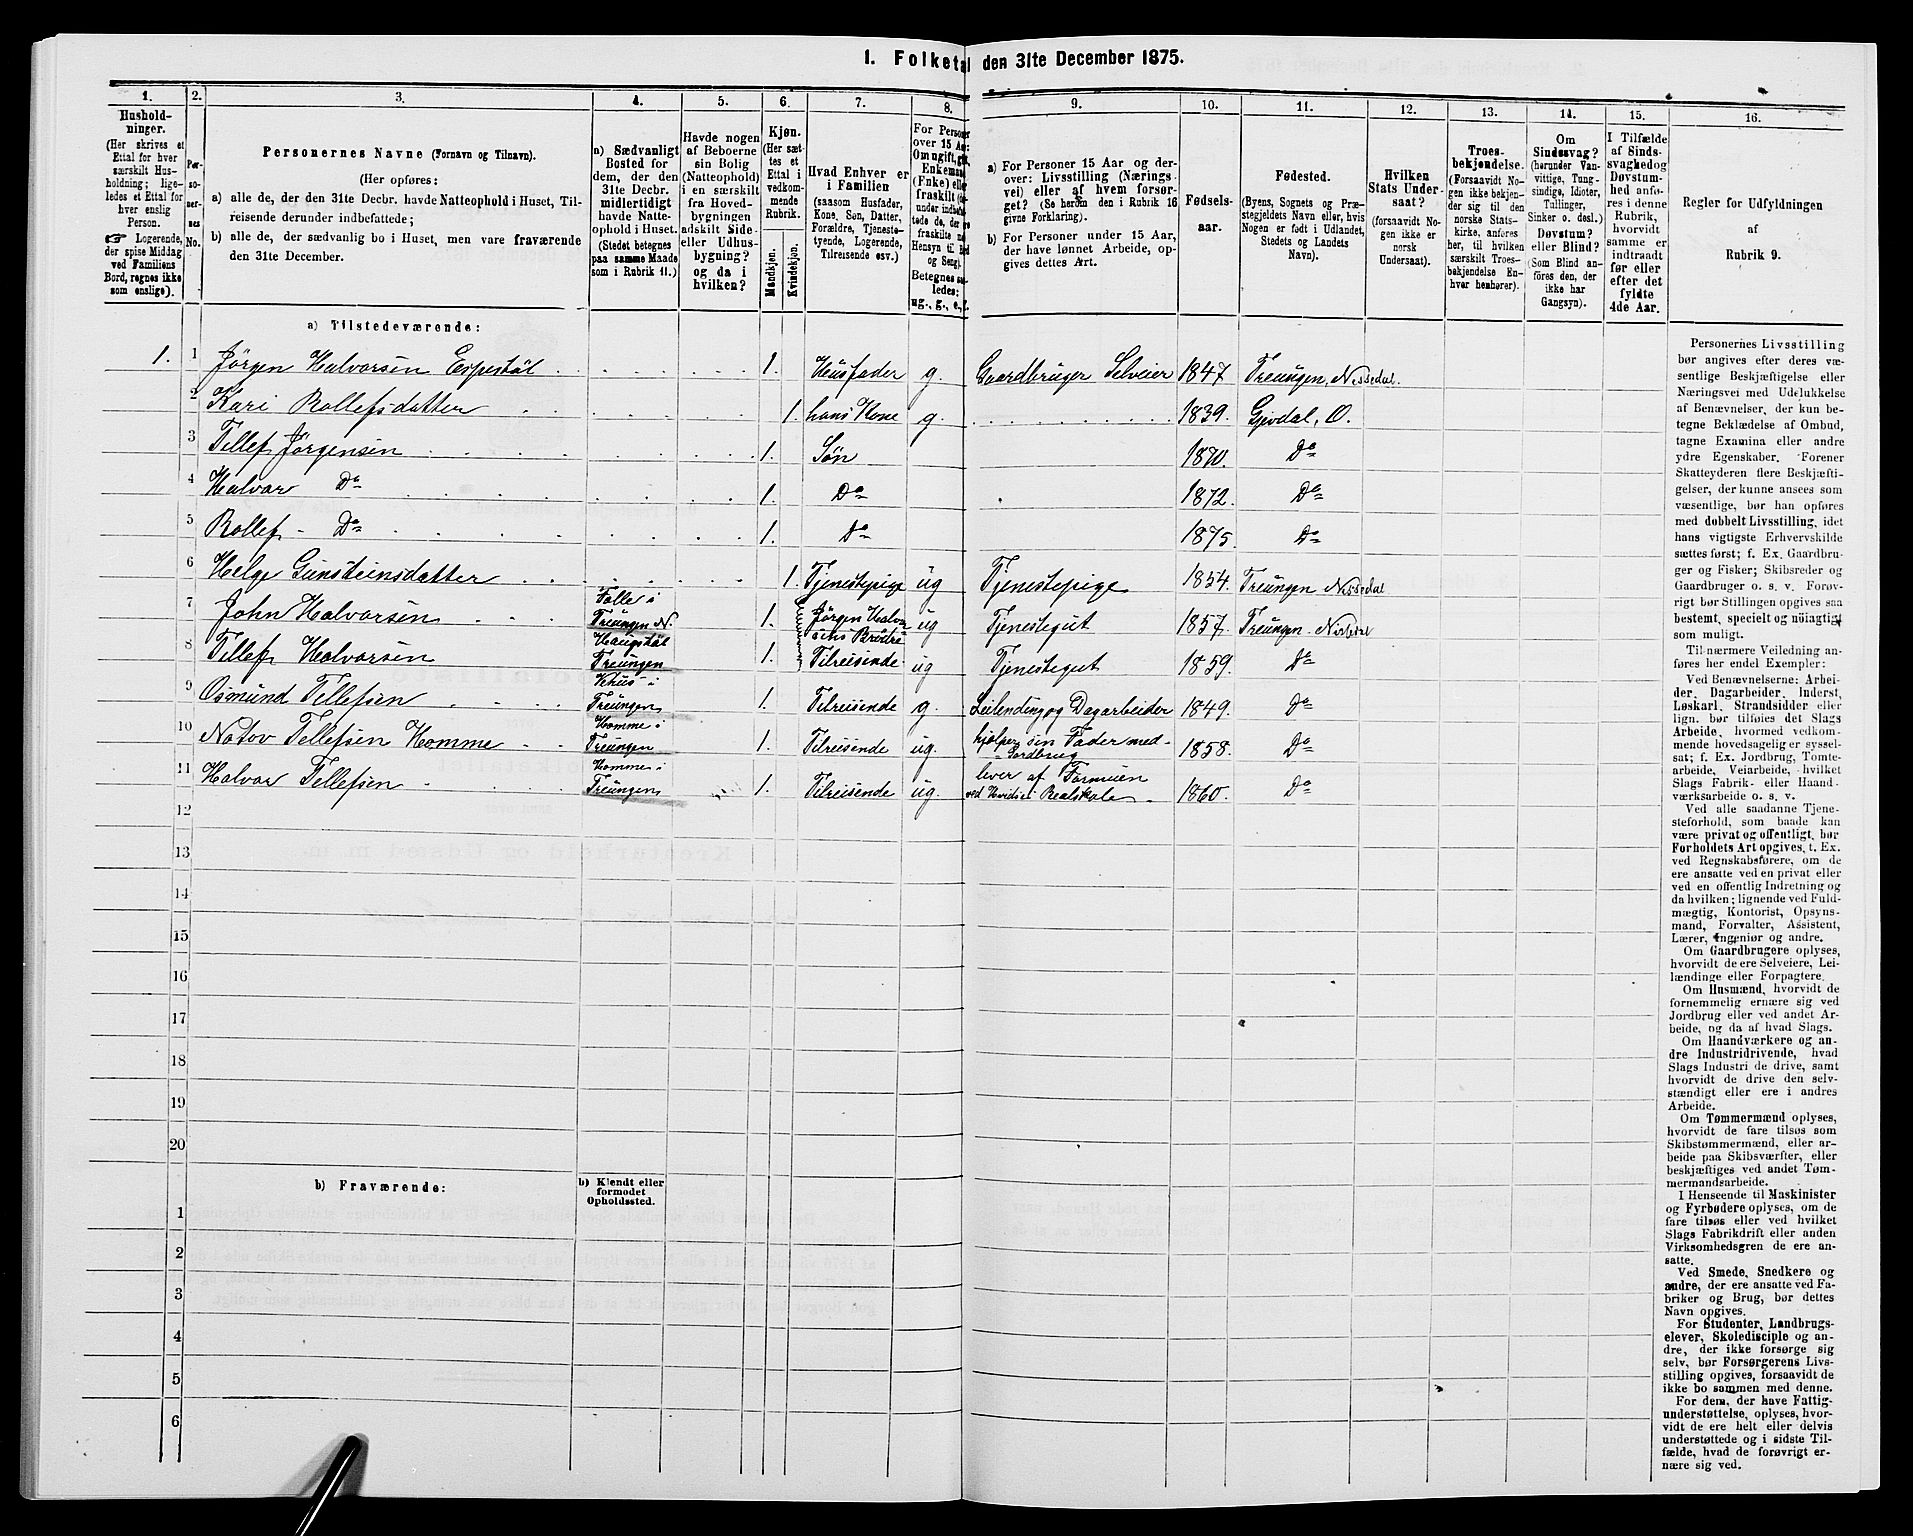 1. Folketal den 31te December 1875.
1. 2. 3. 4. 5. 6. 7. 8. 9. 10. 11. 12. 13. 14. 15. 16.
Hushold-
ninger.
(Her skrives et
Ettal for hver
særskilt Hus-
holdning; lige-
ledes et Ettal for
hver enslig
Person.
☞ Logerende,
der spise Middag
ved Familiens
Bord, regnes ikke
som enslige).
Per-
so-
ner-
nes
No.
Personernes Navne (Fornavn og Tilnavn).
(Her opføres:
a) alle de, der den 31te Decbr. havde Natteophold i Huset, Til-
reisende derunder indbefattede;
b) alle de, der sædvanlig bo i Huset, men vare fraværende
den 31te December.
a) Sædvanligt
Bosted for
dem, der den
31te Decbr.
midlertidigt
havde Natte-
ophold i Huset.
(Stedet betegnes
paa samme Maade
som i Rubrik 11.)
Havde nogen
af Beboerne
sin Bolig
(Natteophold)
i en særskilt
fra Hoved-
bygningen
adskilt Side-
eller Udhus-
bygning?
og da i
hvilken?
Kjøn.
(Her sæt-
tes et
Ettal i
vedkom-
mende
Rubrik.
Mandkjøn.
Kvindekjøn.
Hvad Enhver er
i Familien
(saasom Husfader,
Kone, Søn, Datter,
Forældre, Tjeneste-
tyende, Logerende,
Tilreisende osv.)
For Personer
over 15 Aar:
Om ugift, gift,
Enkemand
(Enke) eller
fraskilt
Betegnes saa-
ledes:
ug., g., e., f.
a) For Personer 15 Aar og der-
over: Livsstilling (Nærings-
vei) eller af hvem forsør-
get? (Se herom den i Rubrik 16
givne Forklaring).
b) For Personer under 15 Aar,
der have lønnet Arbeide, op-
gives dettes Art.
Fødsels-
aar.
Fødested.
(Byens, Sognets og Præ-
stegjeldets Navn eller, hvis
Nogen er født i Udlandet,
Stedets og Landets
Navn).
Hvilken
Stats Under-
saat?
(forsaavidt No-
gen ikke er
norsk
Undersaat).
Troes-
bekjendelse.
(Forsaavidt No-
gen ikke bekjen-
der sig til den
norske Stats-
kirke, anføres
her, til hvilken
særskilt Troes-
bekjendelse En-
hver henhører).
Om
Sindssvag?
(herunder Van-
vittige, Tung-
sindige, Idioter,
Tullinger,
Sinker o. desl.)
Døvstum?
eller Blind?
(Som Blind an-
føres den, der
ikke har
Gangsyn).
I Tilfælde
af Sinds-
svaghed og
Døvstum-
hed anfø-
res i denne
Rubrik,
hvorvidt
samme er
indtraadt
før eller
efter det
fyldte
4de Aar.
Regler for Udfyldningen
af
Rubrik 9.
a) Tilstedeværende:
1. 1 Jörgen Halvorsen Espestöl 1. Husfader g. Gaardbruger Selveier 1847 Treungen, Nissedal.
2 Kari Rollefsdatter 1. hans Kone g. 1839. Gjövdal, O.
3 Tellef Jörgensen 1. Søn 1870. Do
4 Halvor Do 1. Do 1872. Do
5 Rollef - Do 1. Do 1875. Do
6 Helge Gunsteinsdatter 1. Tjenestepige ug Tjenestepige 1854. Treungen Nissedal
7 John Halvorsen Folle i Treungen N. 1. Jörgen Halvor sens Brödre ug Tjenestegut 1857. Treungen Nissedal
8 Tellef Halvorsen Haugstöl Treungen 1. Tilreisende ug Tjenestegut 1859. Do
9 Osmund Tellefsen Vehus i Treungen 1. Tilreisende g. Leilending og Dagarbeider 1849. Do
10 Notov Tellefsen Homme Homme i Treungen 1. Tilreisende ug. hjelper sin Fader med Jordbrug 1858. Do
11 Halvor Tellefsen Homme i Treungen 1. Tilreisende ug. lever af Formuen ved Hvidsei Realskole 1860. Do
12
13
14
15
16
17
18
19
20
b) Fraværende:
b) Kjendt eller
formodet
Opholdssted.
1
2
3
4
5
6
Personernes Livsstilling
bør angives efter deres væ-
sentlige Beskjæftigelse eller
Næringsvei med Udelukkelse
af Benævnelser, der kun be-
tegne Beklædelse af Ombud,
tagne Examina eller andre
ydre Egenskaber. Forener
Skatteyderen flere Beskjæfti-
gelser, der kunne ansees som
væsentlige, bør han opføres
med dobbelt Livsstilling, idet
hans vigtigste Erhvervskilde
sættes først; f. Ex. Gaardbru-
ger og Fisker; Skibsreder og
Gaardbruger o. s. v. Forøv-
rigt bør Stillingen opgives saa
bestemt, specielt og nøiagtigt
som muligt.
Til nærmere Veiledning an-
føres her endel Exempler:
Ved Benævnelserne: Arbei-
der, Dagarbeider, Inderst,
Løskarl, Strandsidder eller
lign. bør tilføies det Slags
Arbeide, hvormed vedkom-
mende hovedsagelig er syssel-
sat; f. Ex. Jordbrug, Tomte-
arbeide, Veiarbeide, hvilket
Slags Fabrik- eller Haand-
værksarbeide o. s. v.
Ved alle saadanne Tjene-
steforhold, som baade kan
være privat og offentligt, bør
Forholdets Art opgives, t. Ex.
ved Regnskabsførere, om de
ere ansatte ved en privat eller
ved en offentlig Indretning og
da hvilken; lignende ved Fuld-
mægtig, Kontorist, Opsyns-
mand, Forvalter, Assistent,
Lærer, Ingeniør og andre.
Om Gaardbrugere oplyses,
hvorvidt de ere Selveiere, Lei-
lændinge eller Forpagtere.
Om Husmænd, hvorvidt de
fornemmelig ernære sig ved
Jordbrug eller ved andet Ar-
beide, og da af hvad Slags.
Om Haandværkere og an-
dre Industridrivende, hvad
Slags Industri de drive, samt
hvorvidt de drive den selv-
stændigt eller ere i andres
Arbeide.
Om Tømmermænd oplyses,
hvorvidt de fare tilsøs som
Skibstømmermænd, eller ar-
beide paa Skibsværfter, eller
beskjæftiges ved andet Tøm-
mermandsarbeide.
I Henseende til Maskinister
og Fyrbødere oplyses, om de
fare tilsøs eller ved hvilket
Slags Fabrikdrift eller anden
Virksomhedsgren de ere an-
satte.
Ved Smede, Snedkere og
andre, der ere ansatte ved Fa-
briker og Brug, bør dettes
Navn opgives.
For Studenter, Landbrugs-
elever, Skoledisciple og an-
dre, der ikke forsørge sig
selv, bør Forsørgerens Livs-
stilling opgives, forsaavidt de
ikke bo sammen med denne.
For dem, der have Fattig-
understøttelse, oplyses, hvor-
vidt de ere helt eller delvis
understøttede og i sidste Til-
fælde, hvad de forøvrigt er-
nære sig ved.